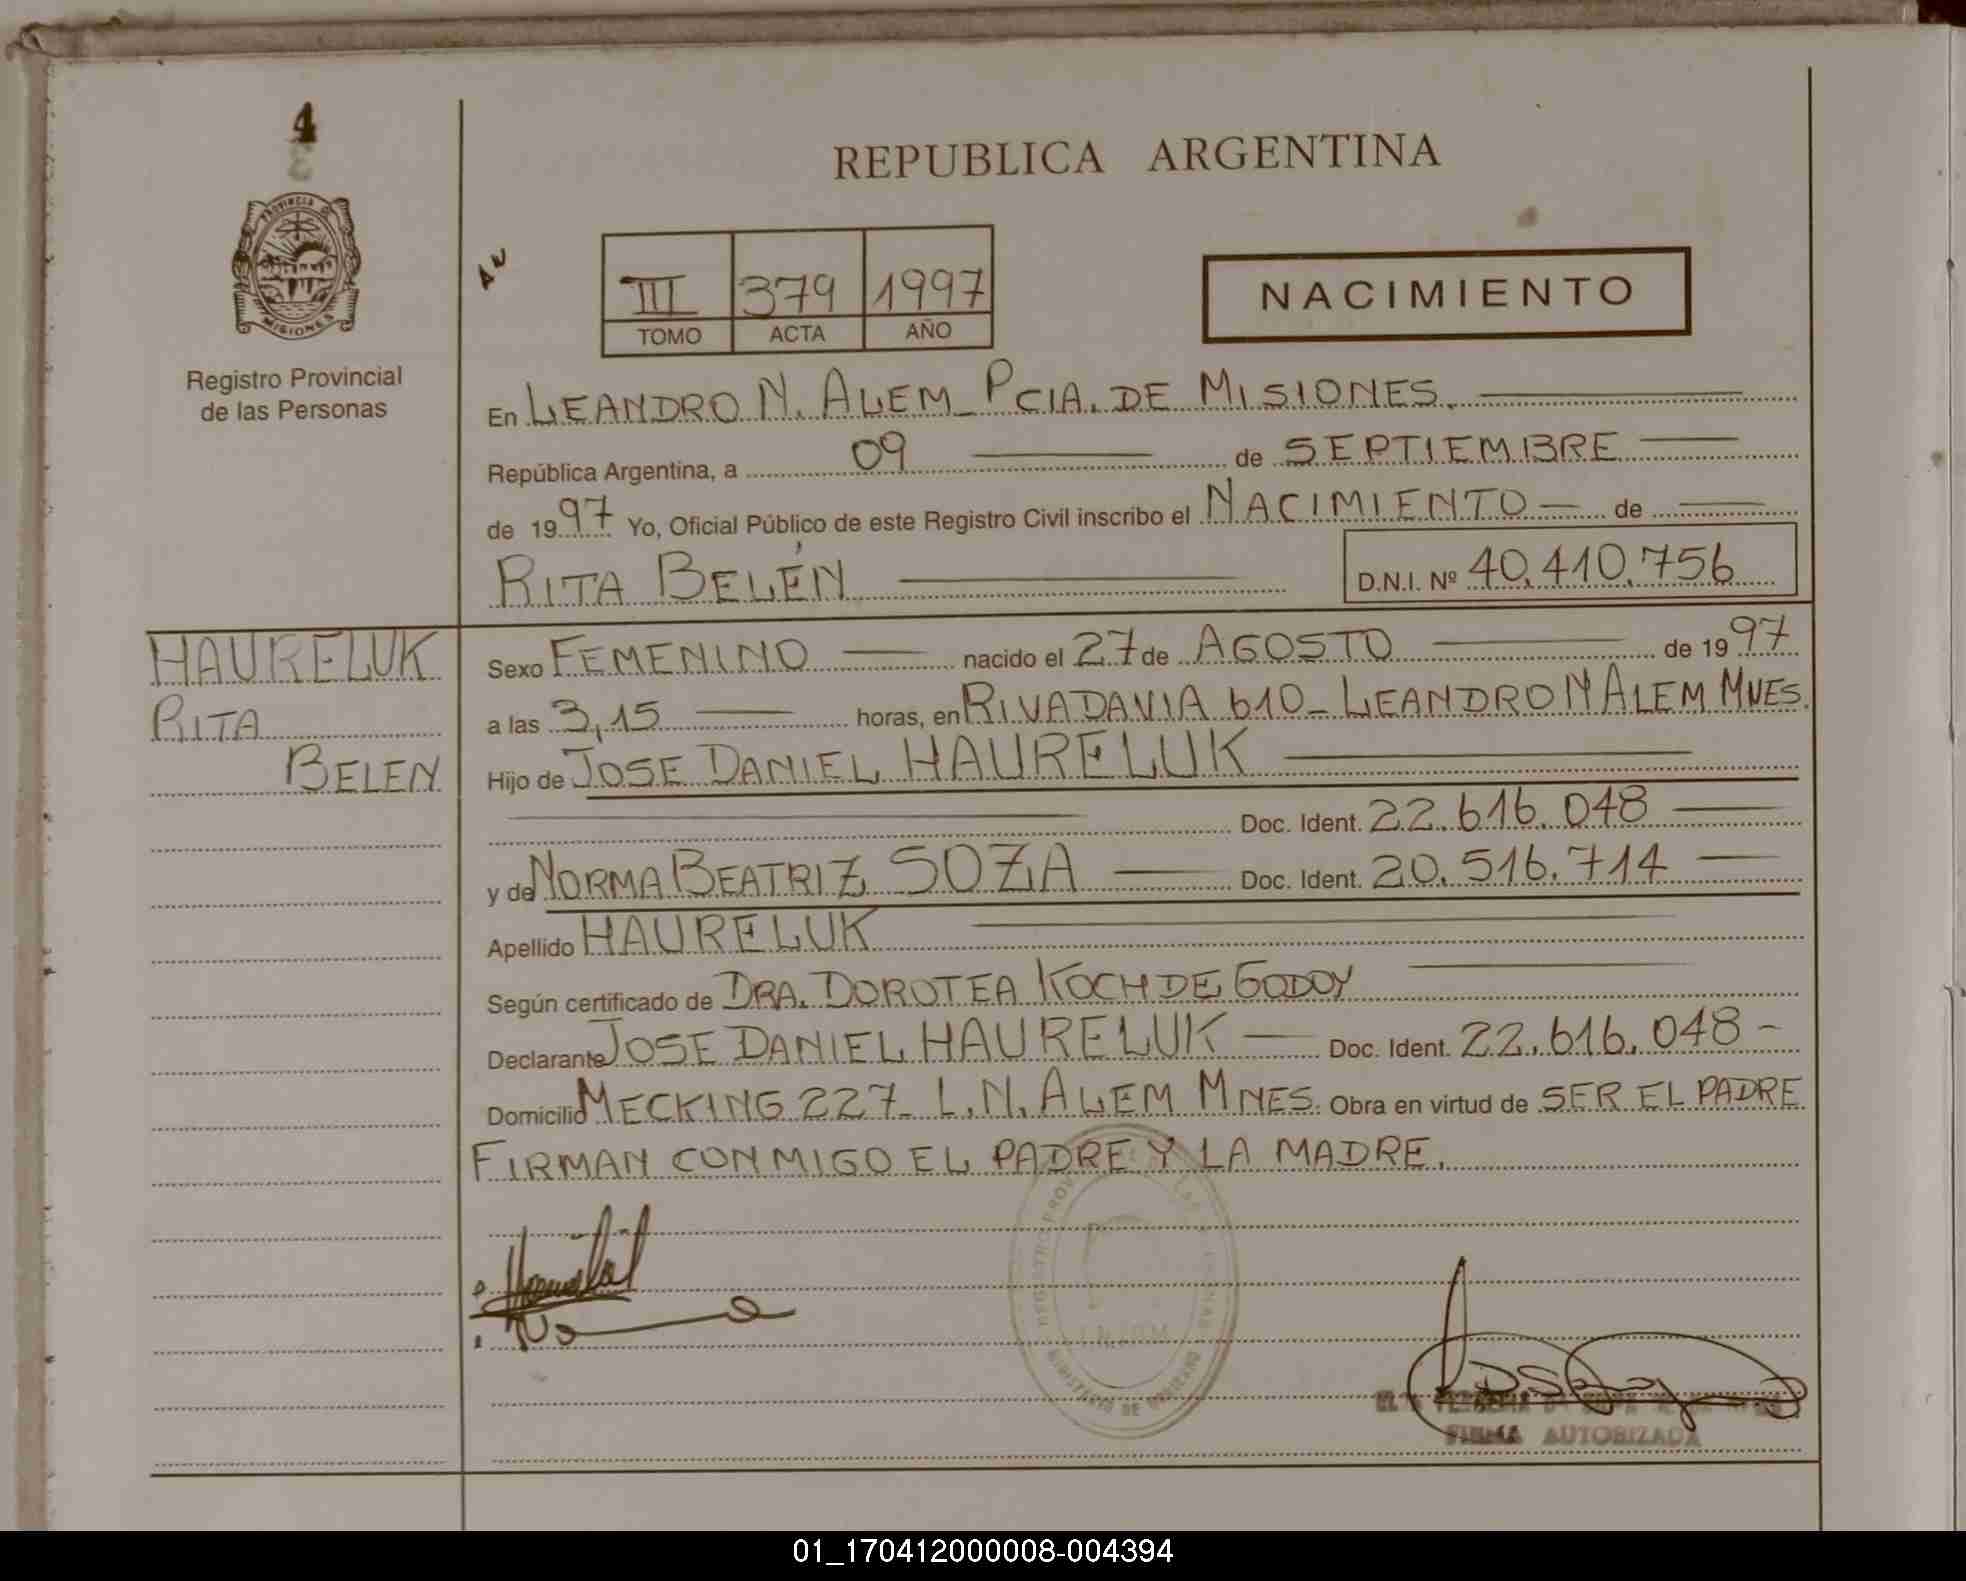 4
3
REPUBLICA ARGENTINA
PROVINCIA DE
MISIONES
III 379 1997
TOMO ACTA AÑO
NACIMIENTO
Registro Provincial
de las Personas
En LEANDRO N. ALEM_ PCIA. DE MISIONES.
República Argentina, a 09 de SEPTIEMBRE
de 1997 Yo, Oficial Público de este Registro Civil inscribo el NACIMIENTO — de
RITA BELÉN D.N.I. Nº 40.410.756
HAURELUK
RITA
BELEN
Sexo FEMENINO — nacido el 27 de AGOSTO — de 1997
a las 3,15 — horas, en RIVADAVIA 610_ LEANDRO N ALEM MNES.
Hijo de JOSE DANIEL HAURELUK
Doc. Ident. 22.616.048
y de NORMA BEATRIZ SOZA — Doc. Ident. 20.516.714
Apellido HAURELUK
Según certificado de DRA. DOROTEA KOCH DE GODOY
Declarante JOSE DANIEL HAURELUK — Doc. Ident. 22.616.048 -
Domicilio MECKING 227_ L.N. ALEM MNES. Obra en virtud de SER EL PADRE
FIRMAN CONMIGO EL PADRE Y LA MADRE.
REGISTRO
MINISTERIO DE GOBIERNO
FIRMA AUTORIZADA
01_170412000008-004394